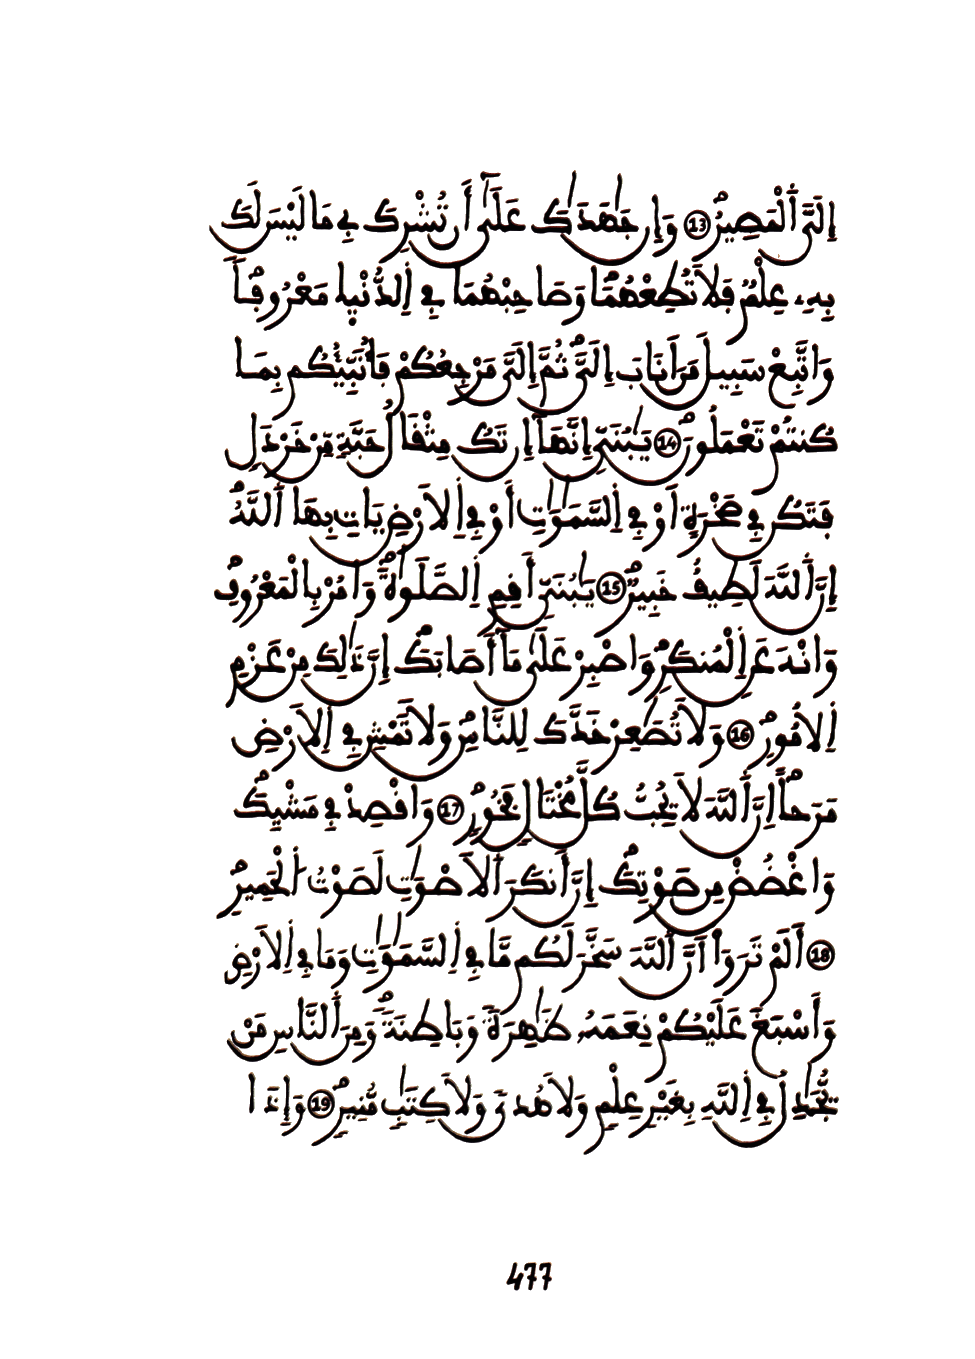 إِلَيَّ اَ۬لْمَصِيرُ 13 وَإِن جَٰهَدَٰكَ عَلَىٰٓ أَن تُشْرِكَ بِے مَا لَيْسَ لَكَ
بِهِۦ عِلْمٞ فَلَا تُطِعْهُمَا وَصَاحِبْهُمَا فِے اِ۬لدُّنْيٜا مَعْرُوفاٗ
وَاتَّبِعْ سَبِيلَ مَنَ اَنَابَ إِلَيَّ ثُمَّ إِلَيَّ مَرْجِعُكُمْ فَأُنَبِّئُكُم بِمَا
كُنتُمْ تَعْمَلُونَ 14 يَٰبُنَيِّ إِنَّهَآ إِن تَكُ مِثْقَالُ حَبَّةٖ مِّنْ خَرْدَلٖ
فَتَكُن فِے صَخْرَةٍ اَوْ فِے اِ۬لسَّمَٰوَٰتِ أَوْ فِے اِ۬لَارْضِ يَاتِ بِهَا اَ۬للَّهُ
إِنَّ اَ۬للَّهَ لَطِيفٌ خَبِيرٞ 15 يَٰبُنَيِّ أَقِمِ اِ۬لصَّلَوٰةَ وَامُرْ بِالْمَعْرُوفِ
وَانْهَ عَنِ اِ۬لْمُنكَرِ وَاصْبِرْ عَلَىٰ مَآ أَصَابَكَ إِنَّ ذَٰلِكَ مِنْ عَزْمِ
اِ۬لُامُورِ 16 وَلَا تُصَٰعِرْ خَدَّكَ لِلنَّاسِ وَلَا تَمْشِ فِے اِ۬لَارْضِ
مَرَحاً اِنَّ اَ۬للَّهَ لَا يُحِبُّ كُلَّ مُخْتَالٖ فَخُورٖ 17 وَاقْصِدْ فِے مَشْيِكَ
وَاغْضُضْ مِن صَوْتِكَ إِنَّ أَنكَرَ اَ۬لَاصْوَٰتِ لَصَوْتُ اُ۬لْحَمِيرِ
18 أَلَمْ تَرَوَاْ اَنَّ اَ۬للَّهَ سَخَّرَ لَكُم مَّا فِے اِ۬لسَّمَٰوَٰتِ وَمَا فِے اِ۬لَارْضِ
وَأَسْبَغَ عَلَيْكُمْ نِعَمَهُۥ ظَٰهِرَةٗ وَبَاطِنَةٗ وَمِنَ اَ۬لنَّاسِ مَنْ
يُّجَٰدِلُ فِے اِ۬للَّهِ بِغَيْرِ عِلْمٖ وَلَا هُدىٗ وَلَا كِتَٰبٖ مُّنِيرٖ 19 وَإِذَا
477